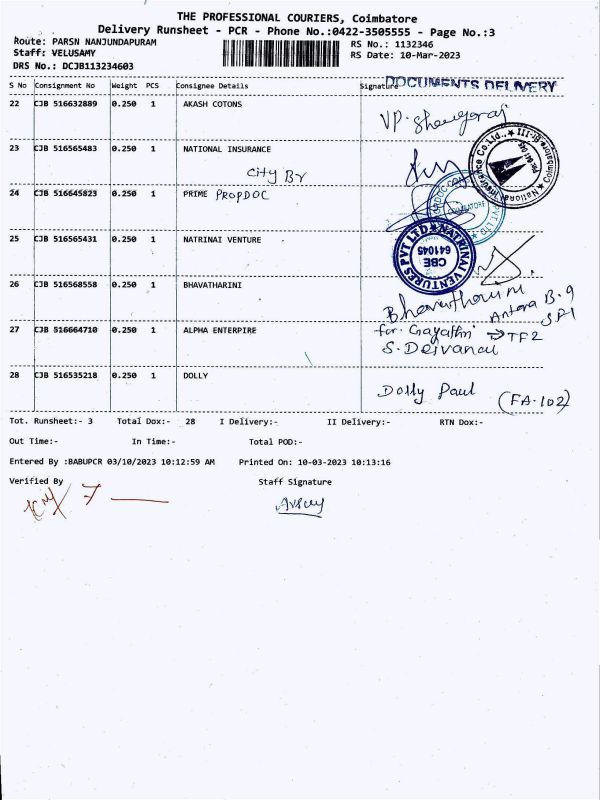 THE PROFESSIONAL COURIERS, Coimbatore
Delivery Runsheet - PCR - Phone No.:0422-3505555 - Page No.:3
Route: PARSN NANJUNDAPURAM
RS No.: 1132346
Staff: VELUSAMY
RS Date: 10-Mar-2023
DRS No.: DCJB113234603
DOCUMENTS DELIVERY
S No Consignment No Weight PCS Consignee Details Signature
22 CJB 516632889 0.250 1 AKASH COTONS
VP.
23 CJB 516565483 0.250 1 NATIONAL INSURANCE
City BY
24 CJB 516645823 0.250 1 PRIME PROPDOC
25 CJB 516565431 0.250 1 NATRINAI VENTURE
NATRINAI VENTURES PVT LTD
CBE
641045
26 CJB 516568558 0.250 1 BHAVATHARINI
27 CJB 516664710 0.250 1 ALPHA ENTERPIRE
for. Gayathri → TF2
28 CJB 516535218 0.250 1 DOLLY
Dolly Paul (FA-102)
Tot. Runsheet:- 3 Total Dox:- 28 I Delivery:- II Delivery:- RTN Dox:-
Out Time:- In Time:- Total POD:-
Entered By :BABUPCR 03/10/2023 10:12:59 AM Printed On: 10-03-2023 10:13:16
Verified By Staff Signature